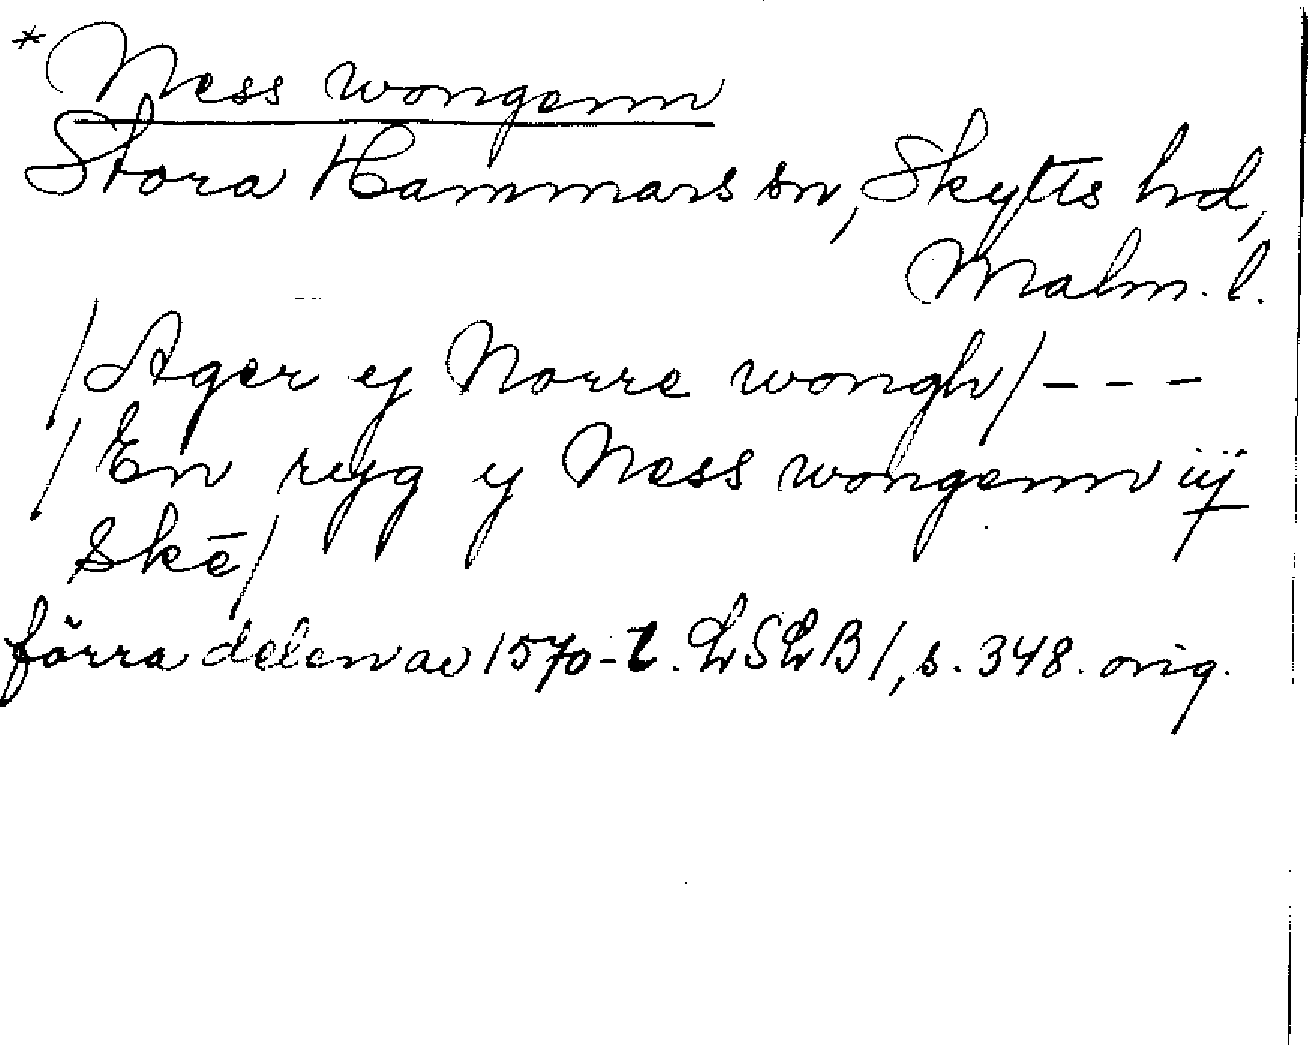 * Ness wongenn
Stora Hammars sn, Skytts hd,
Malm. l.
/Ager y Norre wongh/ - - -
/En ryg y Ness wongenn iij
Skē/
förra delen av 1570-t. LSLB 1, s. 348. orig.